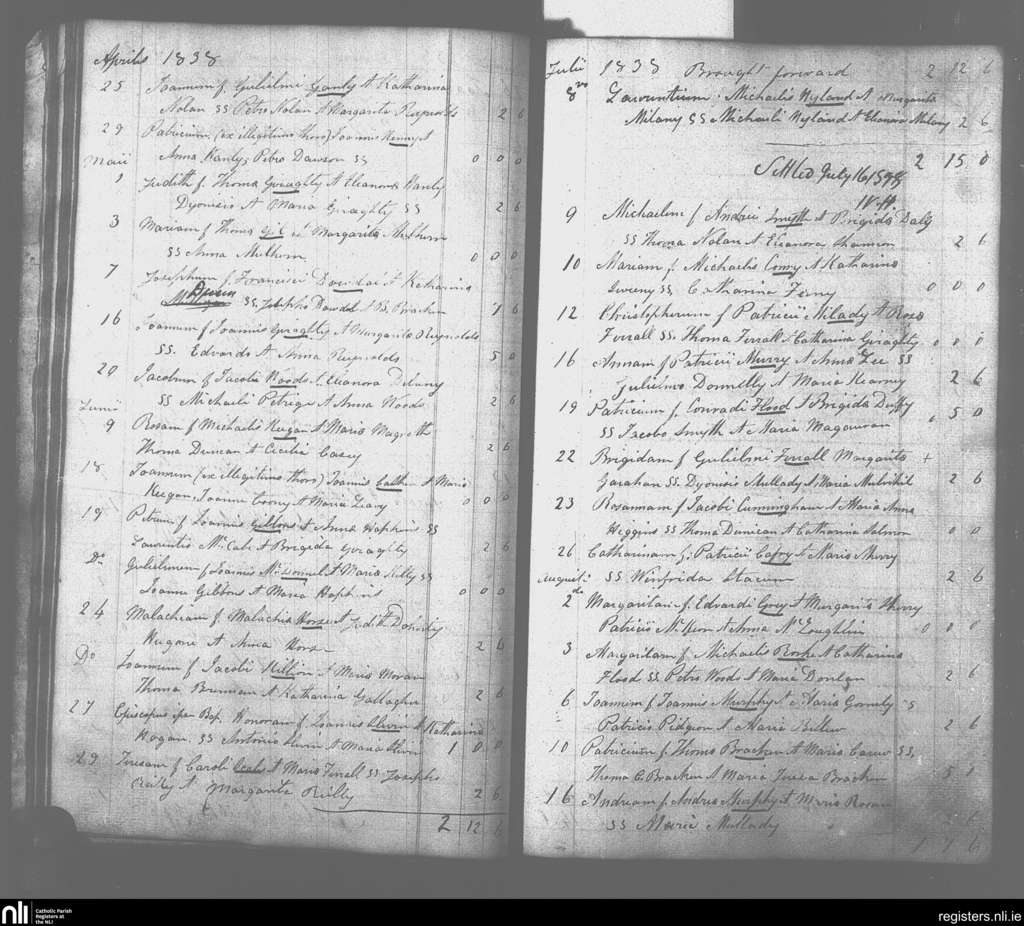 Aprilis 1838
25 Joannem f. Gulielmi Ganly & Katharina
Nolan SS Petro Nolan & Margarita Raynolds 2 6
29 Patricium (ex illegitimo thoro) Joannis Kenny &
Anna Hanly; Petro Dawson SS 0 0 0
Maii
1 Judith f. Thoma Geraghty & Eleanora Hanly
Dyonisio & Maria Geraghty SS 2 6
3 Mariam f. Thoma & Margarita Mulhern
SS Anna Mulhern 0 0 0
7 Josephum f. Francisci Dowdal & Katharina
Dunn SS. Josepho Dowdal & B. Bracken 7 6
16 Joannem f. Joannis Geraghty & Margarita Reynolds
SS. Edvardo & Anna Reynolds 5 0
20 Jacobum f. Jacobi Woods & Eleanora Delany
SS Michaeli Petrige & Anna Woods 2 6
Junii
9 Rosam f. Michaelis Keegan & Maria Magrath
Thoma Duncan & Cecilia Casey 2 6
18 Joannem (ex illegitimo thoro) Joannis & Maria
Keegan, Joanne Crony & Maria Leavy 0 0 0
19 Petrum f. Joannis Gibbons & Anna Hopkins SS
Laurentio McCabe & Brigida Geraghty 2 6
Do Gulielmum f. Joannis McDonnel & Maria Kelly SS
Joanne Gibbons & Maria Hopkins 0 0 0
24 Malachiam f. Malachia Horan & Judith Doherty
Eugene & Anna Horan 2 6
Do Joannem f. Jacobi Killion & Maria Moran
Thoma Brennan & Katharina Gallagher 2 6
27 Episcopus ipse Bap. Honoram f. Joannis Slevin & Katharina
Hogan. SS Antonio Slevin & Maria Slevin 1 0 0
29 Teresam f. Caroli & Maria Farrall SS Josepho
Reilly & Margarita Reilly 2 6
2 12 6
Julii 1838 Brought forward 2 12 6
8vo Laurentium. Michaelis Hyland & Margarita
Milany SS Michaeli Hyland & Eleanora Milany 2 6
2 15 0
Settled July 16, 1838
W.H.
9 Michaelem f Andrea Smyth & Brigida Daly
SS Thoma Nolan & Eleanora Shannon 2 6
10 Mariam f. Michaelis Conry & Katharina
Sweeny SS Catharina Ferry 0 0 0
12 Christopherum f Patricii Milady & Rosa
Farrall SS. Thoma Farrall & Catharina Geraghty 0 0 0
16 Annam f Patricii Murry & Anna Lee SS
Gulielmo Donnelly & Maria Kearney 2 6
19 Patricium f. Conradi Flood & Brigida Duffy
SS Jacobo Smyth & Maria Magauran 5 0
22 Brigidam f Gulielmi Farrall Margarita +
Garahan SS. Dyonisio Mullady & Maria Mulvihil 2 6
23 Rosannam f Jacobi Cunningham & Maria Anna
Higgins SS Thoma Duncan & Catharina Salmon 0 0
26 Catharinam f; Patricii Cafry & Maria Murry
SS Winfrida Stacum 2 6
Augusti
2 do Margaritam f. Edvardi Grey & Margarita Sherry
Patricio McKeon & Anna McLoughlin 0 0 0
3 Margaritam f. Michaelis Rorke & Catharina
Flood SS. Petro Woods & Maria Donlan 2 6
6 Joannem f Joannis Murphy & Maria Gormly S
Patricio Pidgeon & Maria Bellew 2 6
10 Patricium f. Thoma Bracken & Maria Carew SS,
Thoma C. Bracken & Maria Teresa Bracken 5
16 Andream f. Andrea Murphy & Maria Rosan
SS Maria Mullady 2 6
nli
Catholic Parish
Registers at
the NLI
registers.nli.ie